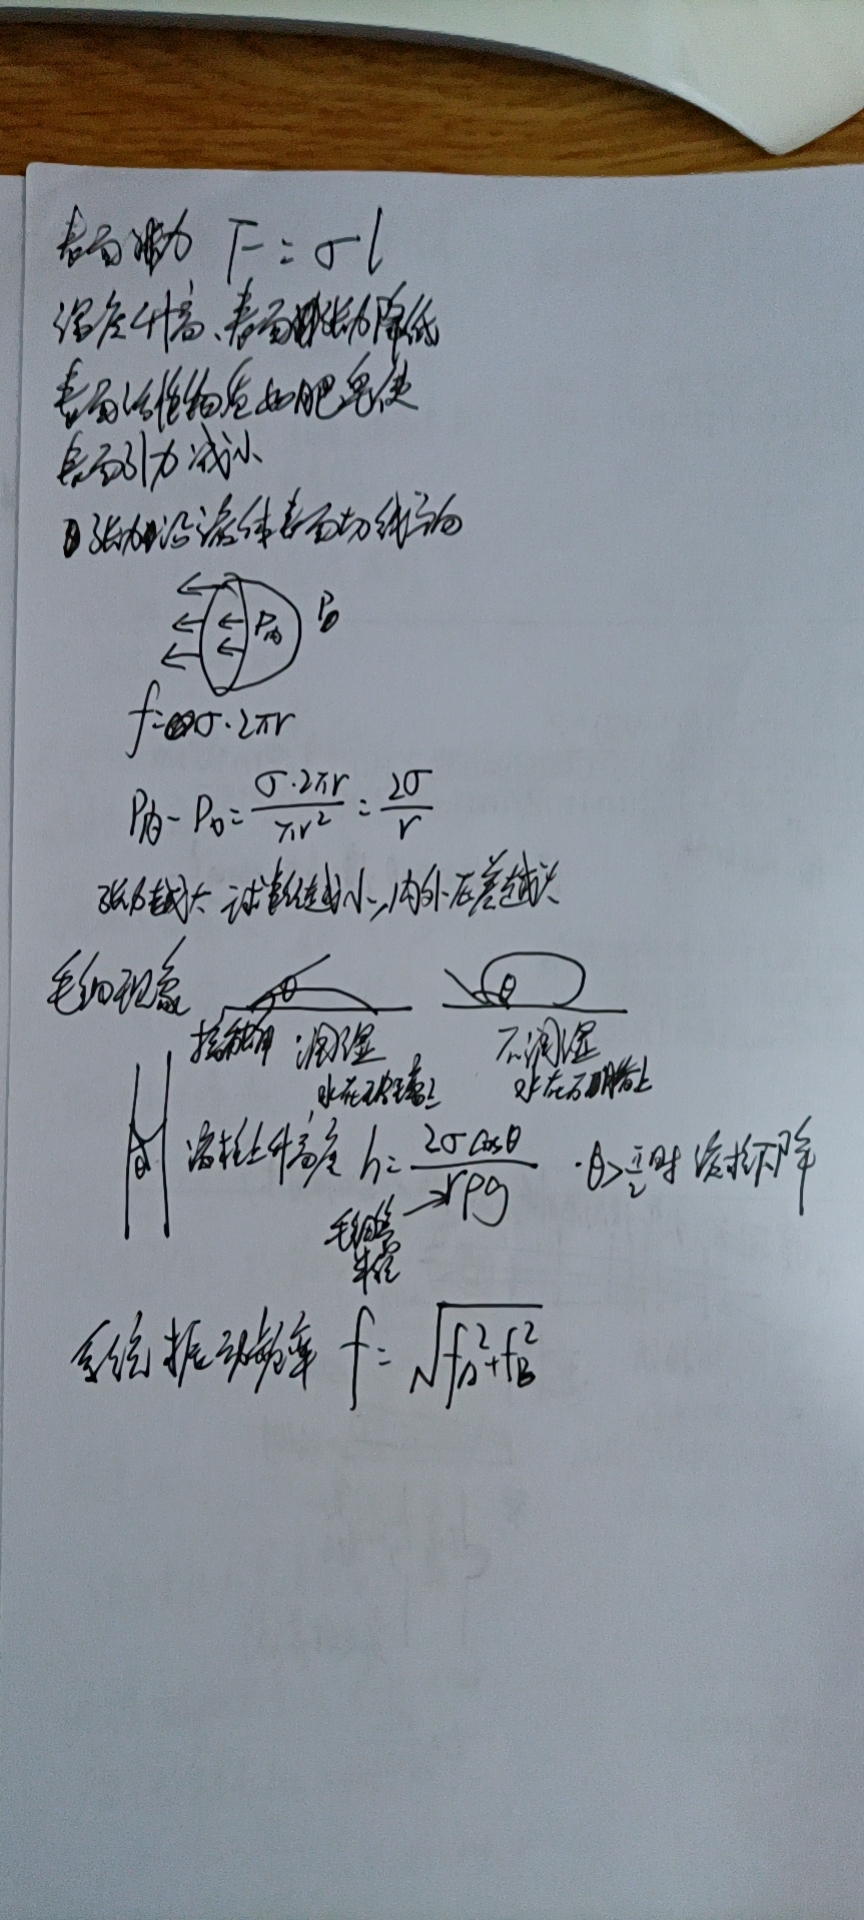 表面张力 F=σl
温度升高、表面张力降低
表面活性物质如肥皂使
表面引力减小
张力沿液体表面切线方向
P内 P0
f=σ·2πr
P内-P0=σ·2πr/πr²=2σ/r
张力越大 球半径越小,内外压差越大
毛细现象 θ θ
接触角 润湿 不润湿
水在玻璃上 水在石蜡上
θ 液柱上升高度 h=2σcosθ/rρg ·θ>π/2时 液柱下降
毛细管
半径
系统振动频率 f=√(fA²+fB²)